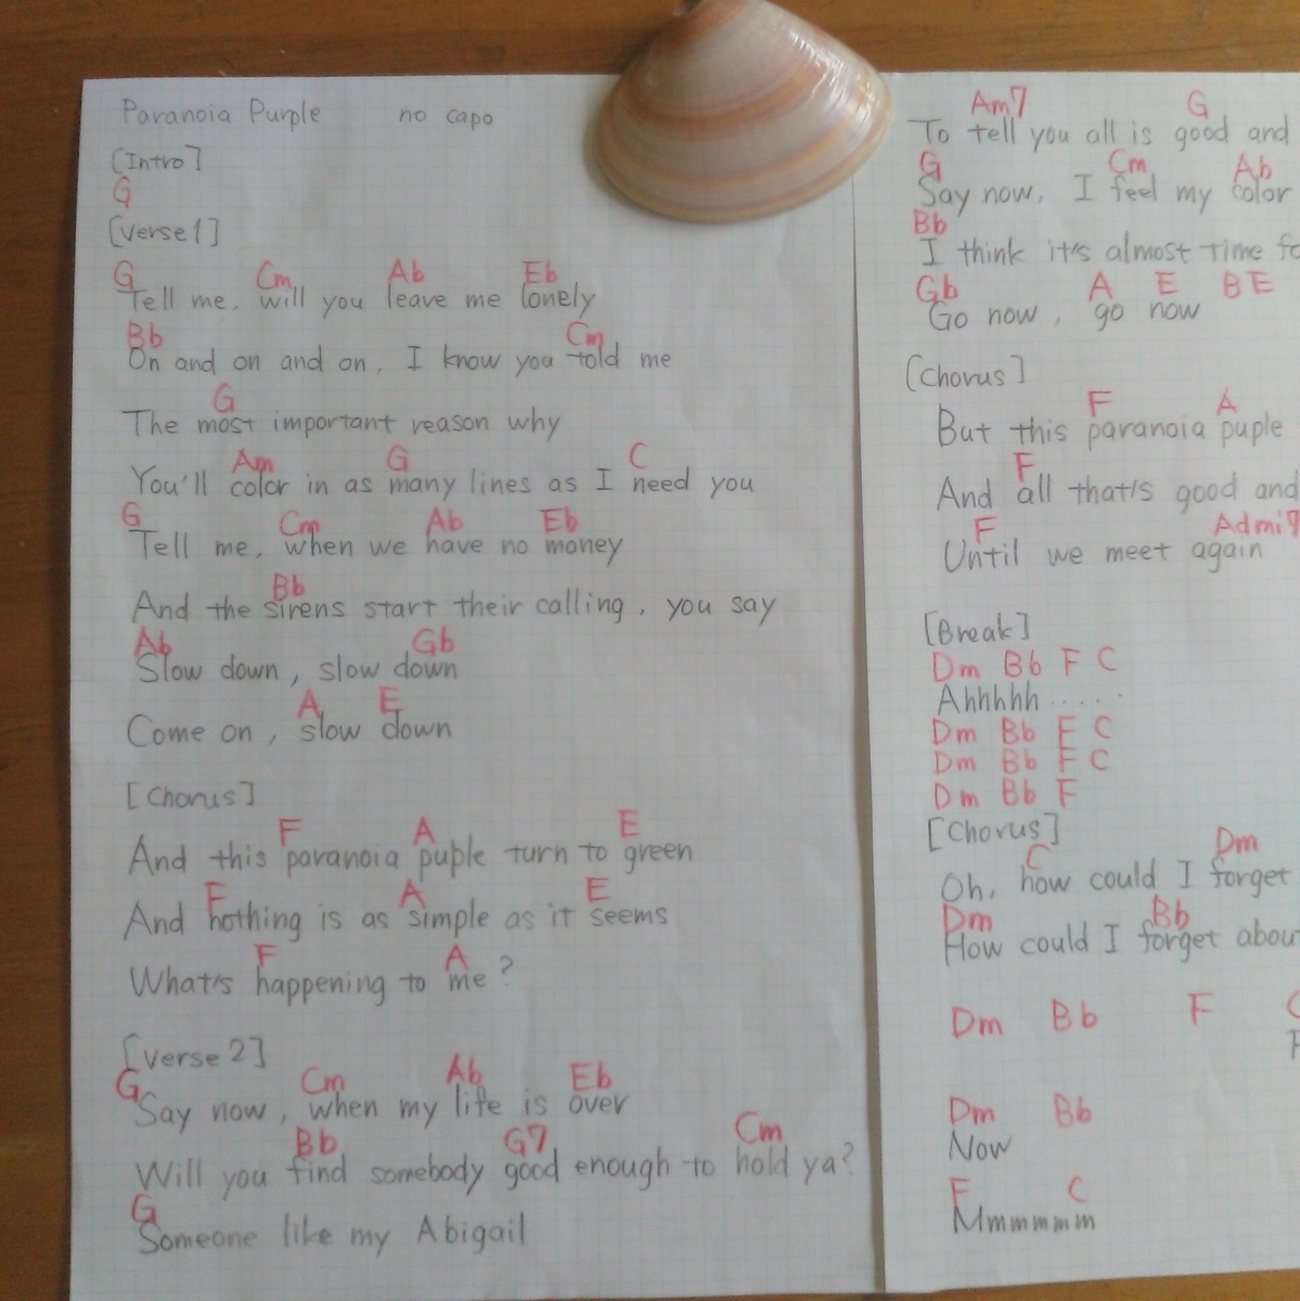 Paranoia Purple no capo
[Intro]
G
[Verse1]
G Cm Ab Eb
Tell me, will you leave me lonely
Bb Cm
On and on and on, I know you told me
G
The most important reason why
Am G C
You'll color in as many lines as I need you
G Cm Ab Eb
Tell me, when we have no money
Bb
And the sirens start their calling, you say
Ab Gb
Slow down, slow down
A E
Come on, slow down
[Chorus]
F A E
And this paranoia puple turn to green
F A E
And nothing is as simple as it seems
F A
What's happening to me?
[Verse 2]
G Cm Ab Eb
Say now, when my life is over
Bb G7 Cm
Will you find somebody good enough to hold ya?
G
Someone like my Abigail
Am7 G
To tell you all is good and
G Cm Ab
Say now, I feel my color
Bb
I think it's almost time
Gb A E B E
Go now, go now
[Chorus]
F A
But this paranoia puple
F
And all that's good and
F Admi7
Until we meet again
[Break]
Dm Bb F C
Ahhhhh .....
Dm Bb F C
Dm Bb F C
Dm Bb F
[Chorus]
C Dm
Oh, how could I forget
Dm Bb
How could I forget
Dm Bb F
Dm Bb
Now
F C
Mmmmmm